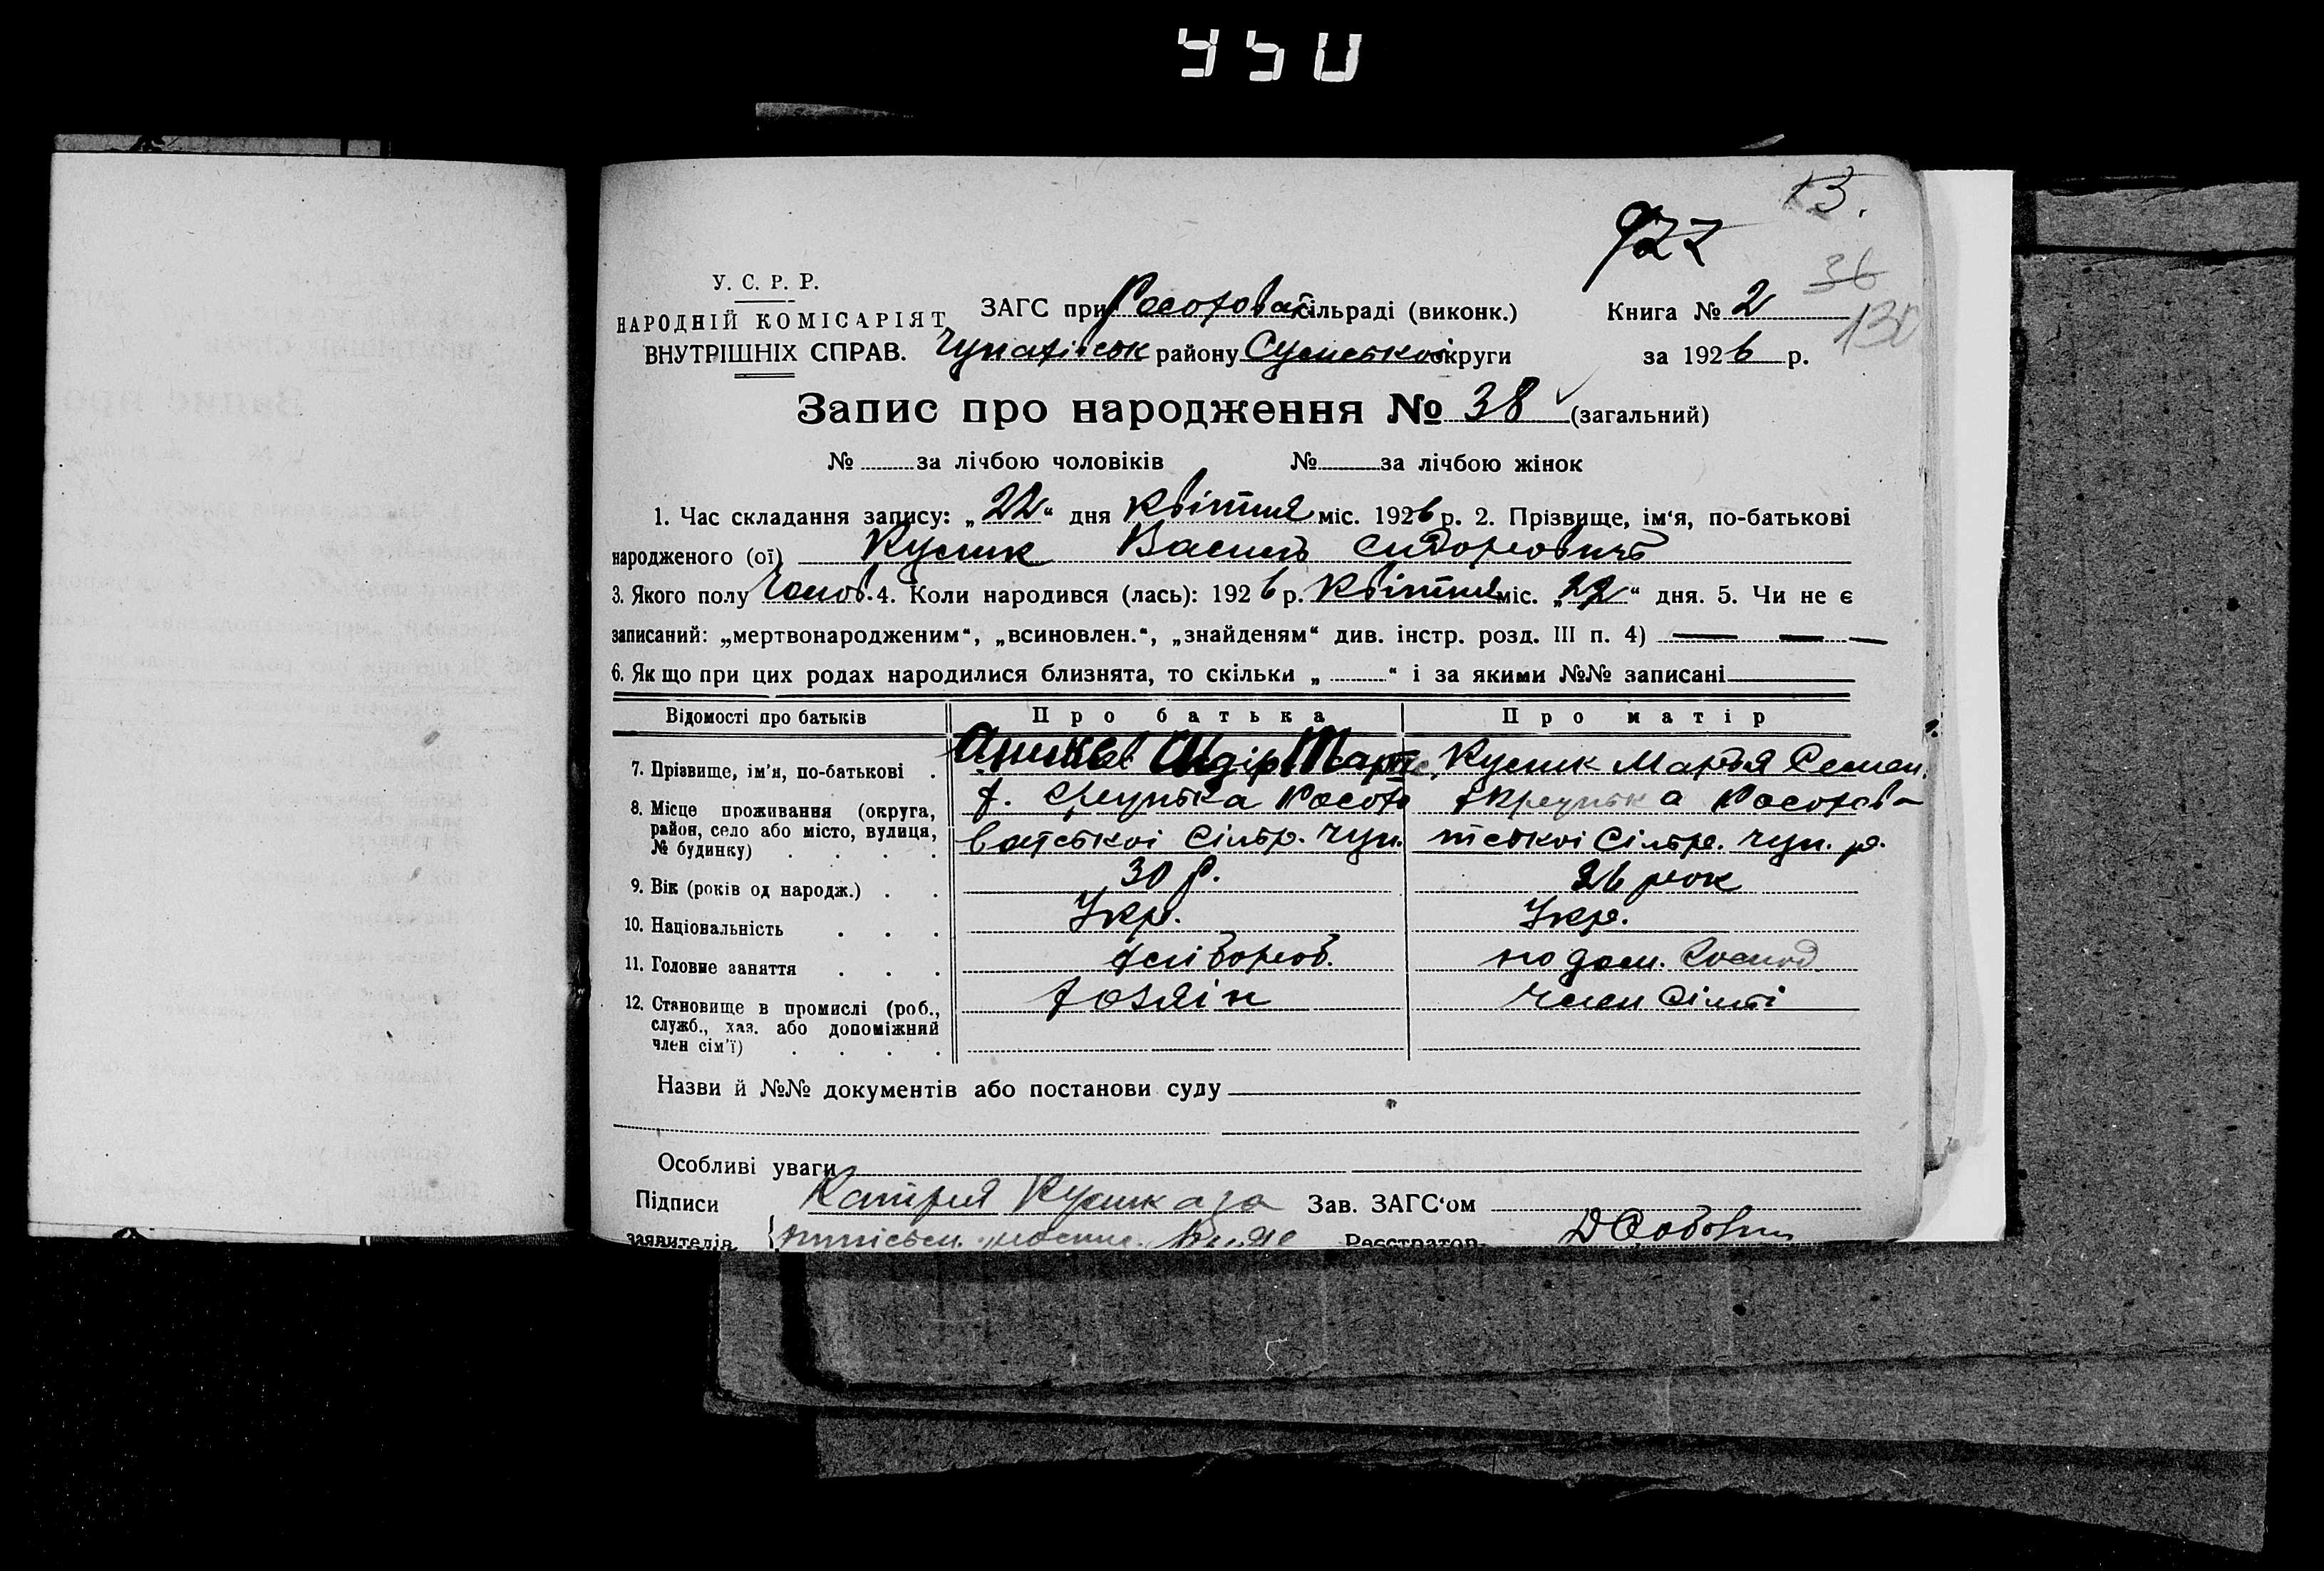 950
13.
922
36
130
У. С. Р. Р.
НАРОДНІЙ КОМІСАРІЯТ
ВНУТРІШНІХ СПРАВ.
ЗАГС при Росоховат сільраді (виконк.)
Чупахівськ району Сумської округи
Книга № 2
за 1926 р.
Запис про народження № 38 (загальний)
№ за лічбою чоловіків № за лічбою жінок
1. Час складання запису: „22“ дня Квітня міс. 1926 р. 2. Прізвище, ім‘я, по-батькові
народженого (ої) Кулик Василь Сидорович
3. Якого полу Чолов. 4. Коли народився (лась): 1926 р. Квітня міс. „22“ дня. 5. Чи не є
записаний: „мертвонародженим“, „всиновлен.“, „знайденям“ див. інстр. розд. III п. 4)
6. Як що при цих родах народилися близнята, то скільки „ “ і за якими №№ записані
Відомості про батьків Про батька Про матір
7. Прізвище, ім'я, по-батькові . Сидір Кулик Марья Семен.
8. Місце проживання (округа,
район, село або місто, вулиця,
№ будинку) . . . .
х. Росохо
ватської Сільр. Чуп.
Росохова
тської Сільре. Чуп. р.
9. Вік (років од народж.) . . 30 р. 26 рок
10. Національність . . . Укр. Укр.
11. Головне заняття . . . хліборов. по дом. Господ.
12. Становище в промислі (роб.,
служб., хаз. або допоміжний
член сім'ї) . . . .
хозяін член Сімі
Назви й №№ документів або постанови суду
Особливі уваги
Підписи Кулик а за Зав. ЗАГС‘ом
заявителів Реєстратор